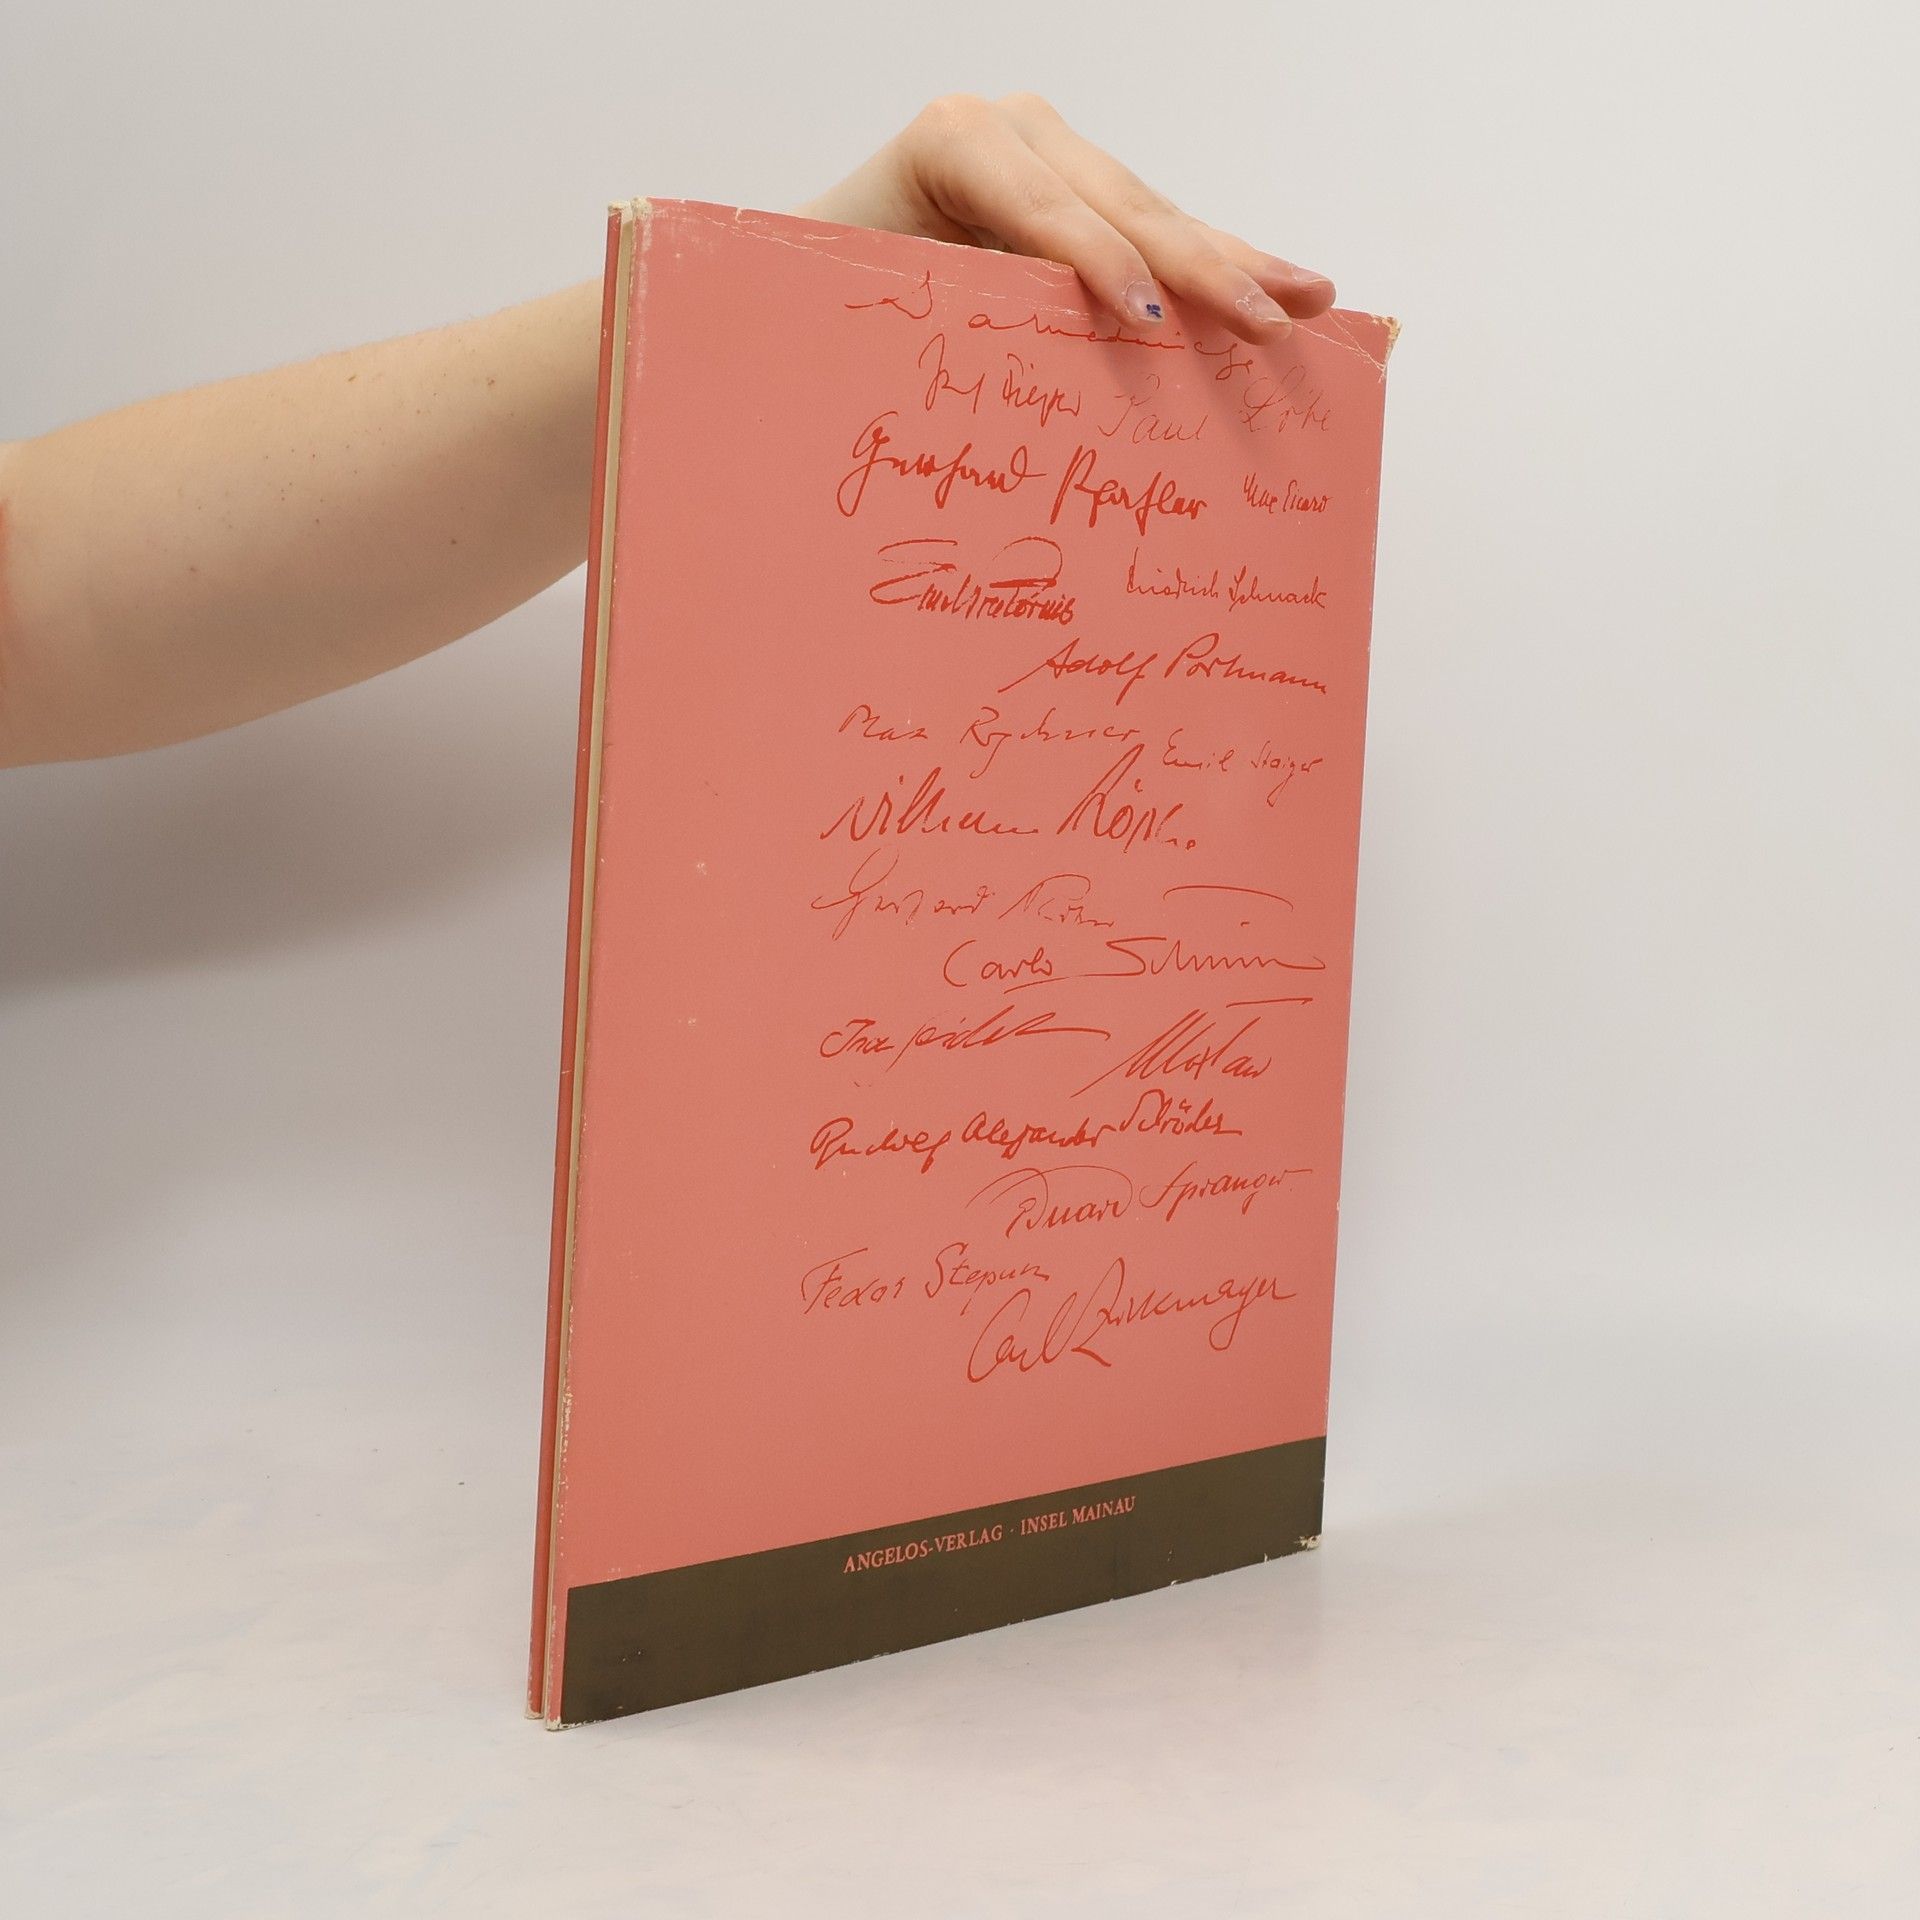 Paul Löbe
Gerhard Max Picard
Emil Preetorius Friedrich Schnack
Adolf Portmann
Max Rychner Emil Staiger
Wilhelm Röpke
Gerhard Ritter
Carlo Schmid
Ina Seidel
Rudolf Alexander Schröder
Eduard Spranger
Fedor Stepun
Carl Zuckmayer
ANGELOS-VERLAG · INSEL MAINAU